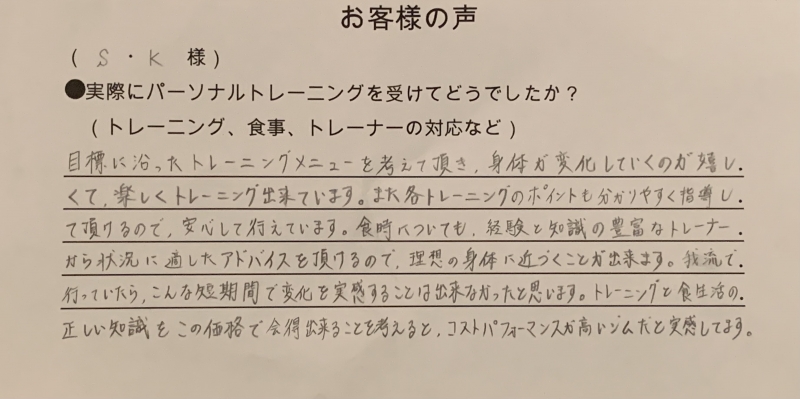 お客様の声
( S ・ K 様 )
●実際にパーソナルトレーニングを受けてどうでしたか？
(トレーニング、食事、トレーナーの対応など)
目標に沿ったトレーニングメニューを考えて頂き、身体が変化していくのが嬉し
くて、楽しくトレーニング出来ています。また各トレーニングのポイントも分かりやすく指導し
て頂けるので、安心して行えています。食時についても、経験と知識の豊富なトレーナー
から状況に適したアドバイスを頂けるので、理想の身体に近づくことが出来ます。我流で
行っていたら、こんな短期間で変化を実感することは出来なかったと思います。トレーニングと食生活の
正しい知識をこの価格で会得出来ることを考えると、コストパフォーマンスが高いジムだと実感してます。